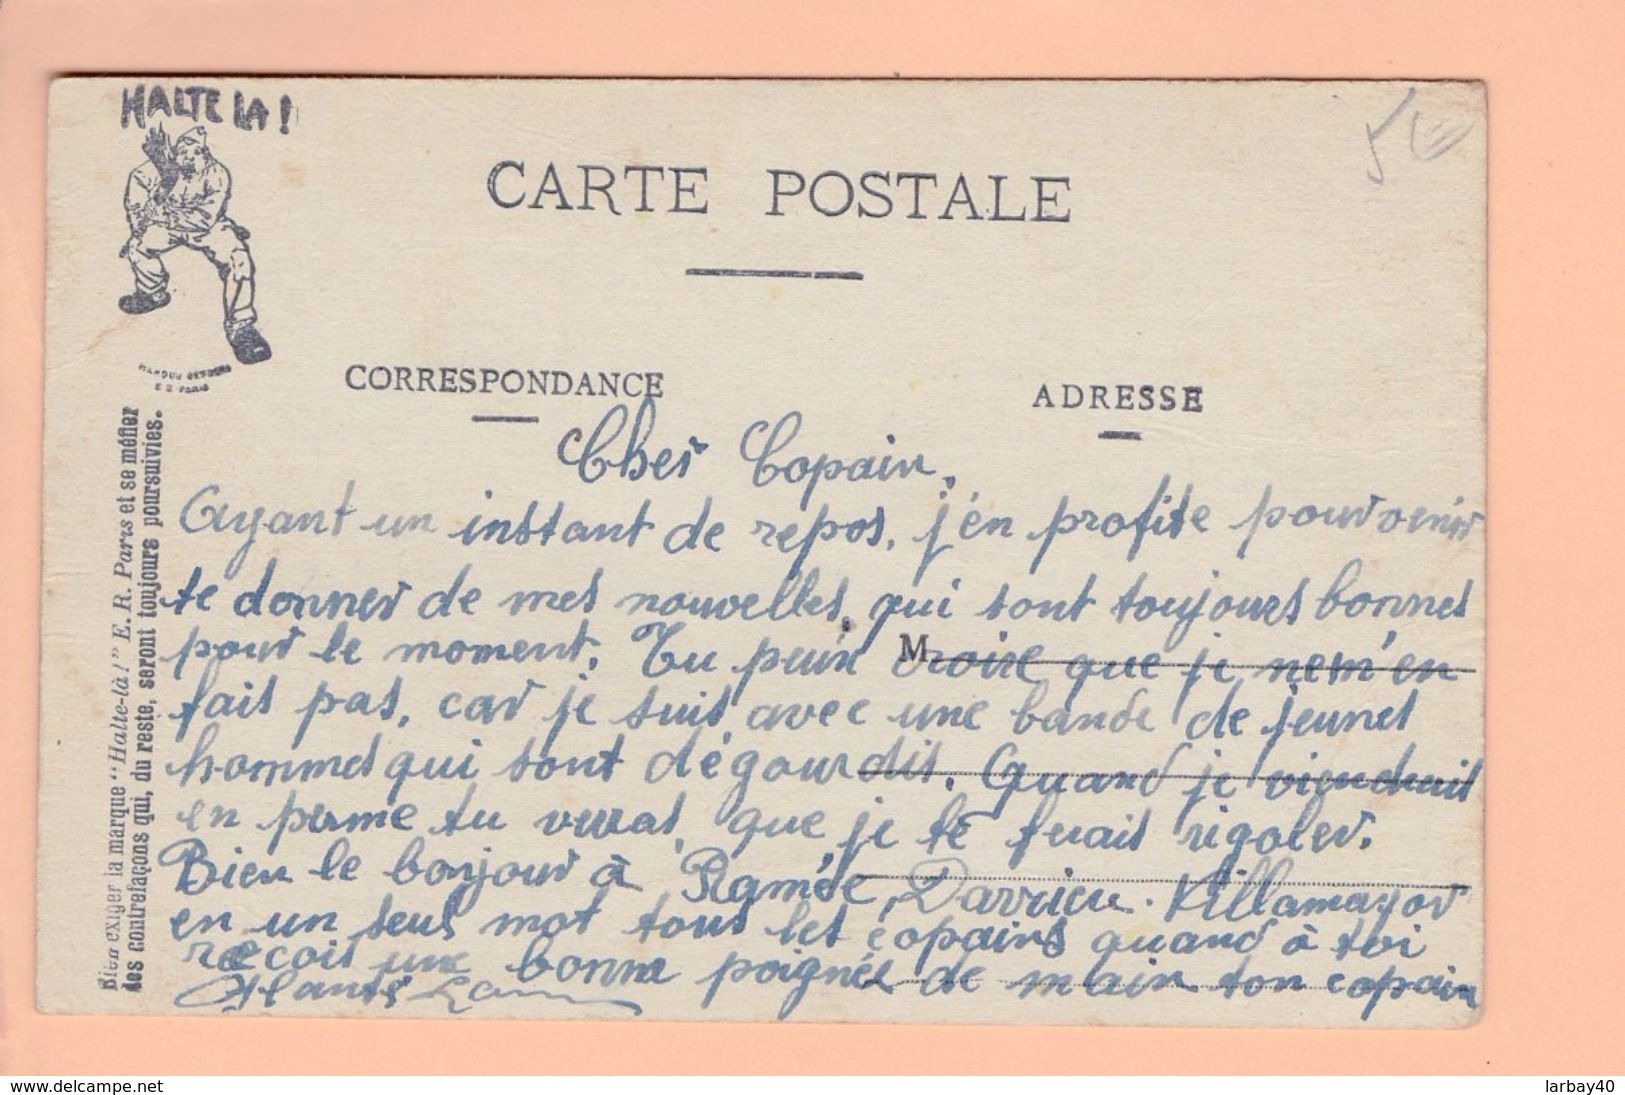 HALTE LA !
CARTE POSTALE
E D PARIS
CORRESPONDANCE
ADRESSE
Bien exiger la marque "Halte-là !" E. R. Paris et se méfier
des contrefaçons qui, du reste, seront toujours poursuivies.
Cher Copain,
Ayant un instant de repos, j'en profite pour venir
te donner de mes nouvelles, qui sont toujours bonnes
pour le moment. Tu peux croire que je ne m'en
M
fait pas, car je suis avec une bande de jeunes
hommes qui sont dégourdis. Quand je viendrait
en perme tu verras que je te ferait rigoler.
Bien le bonjour à Ramée, Darrieu. Villamayor
en un seul mot tous les copains quand à toi
reçois une bonne poignée de main ton copain
www.delcampe.net
larbay40